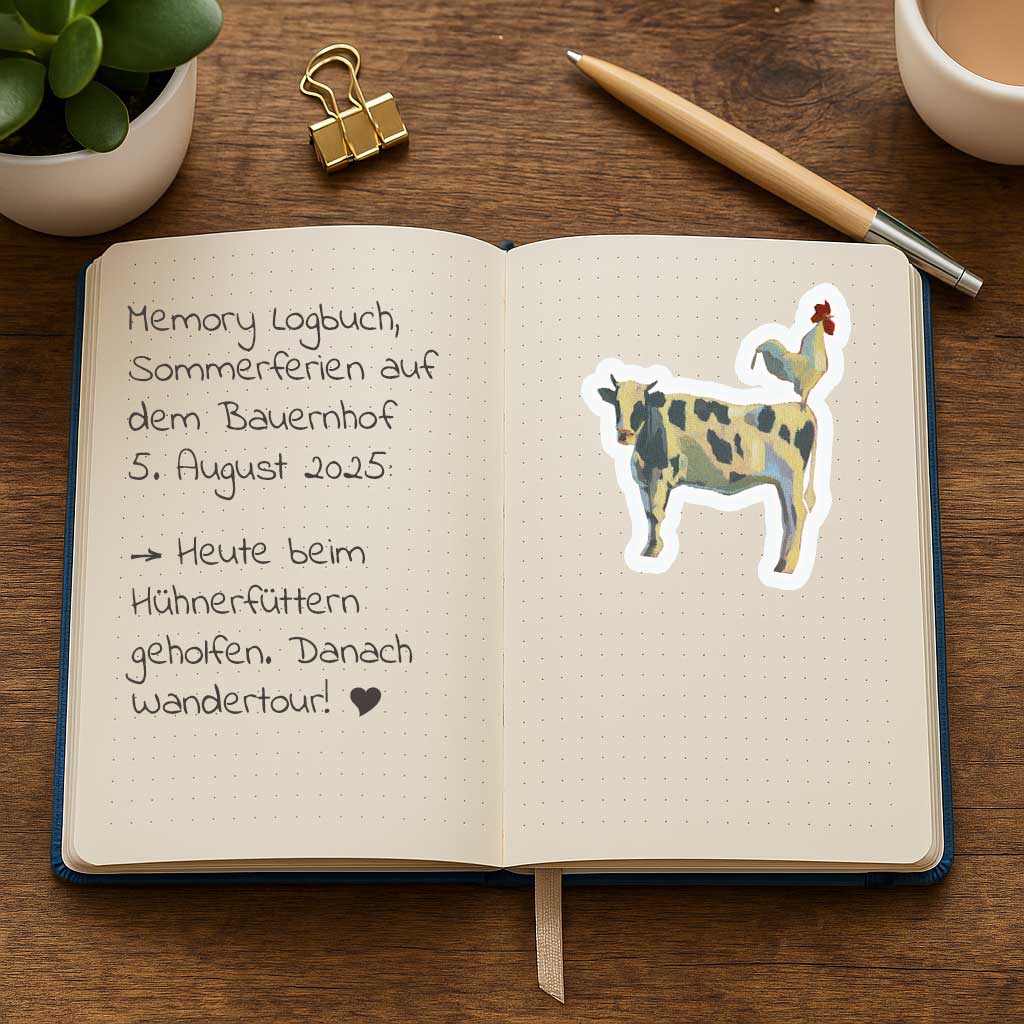 Memory Logbuch,
Sommerferien auf
dem Bauernhof
5. August 2025:
→ Heute beim
Hühnerfüttern
geholfen. Danach
Wandertour! ♥